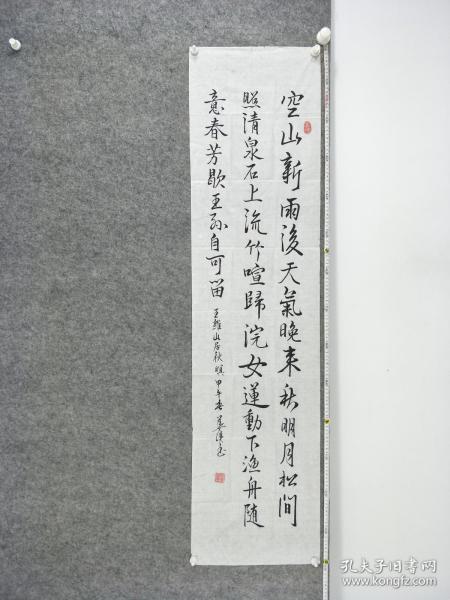 空山新雨後天氣晚来秋明月松間
照清泉石上流竹喧歸浣女蓮動下漁舟随
意春芳歇王孫自可留
王維山居秋暝甲午春
孔夫子旧书网
www.kongfz.com